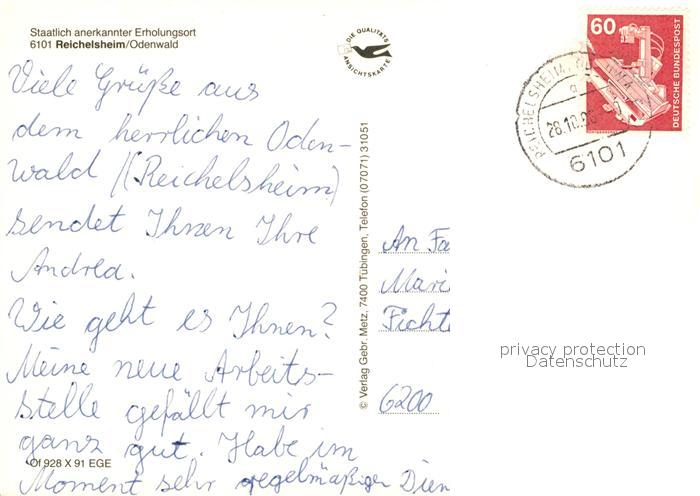 Staatlich anerkannter Erholungsort
6101 Reichelsheim/Odenwald
DIE QUALITÄTS
ANSICHTSKARTE
60
DEUTSCHE BUNDESPOST
REICHELSHEIM
a
28.10.
6101
Viele Grüße aus
dem herrlichen Oden-
wald /(Reichelsheim)
sendet Ihnen Ihre
Andrea.
Wie geht es Ihnen?
Meine neue Arbeits-
stelle gefällt mir
ganz gut. Habe im
Moment sehr regelmäßigen Dien
Of 928 X 91 EGE
© Verlag Gebr. Metz, 7400 Tübingen, Telefon (07071) 31051
An Fa
Mari
Ficht
6200
privacy protection
Datenschutz